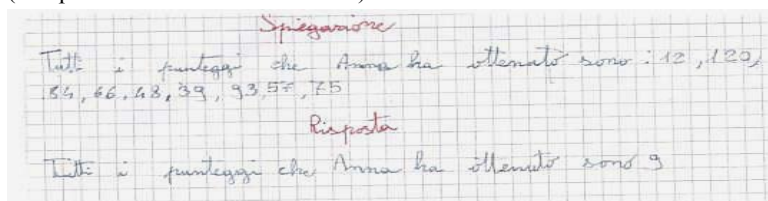 Spiegazione
Tutti i punteggi che Anna ha ottenuto sono: 12, 120,
84, 66, 48, 39, 93, 57, 75
Risposta
Tutti i punteggi che Anna ha ottenuto sono 9